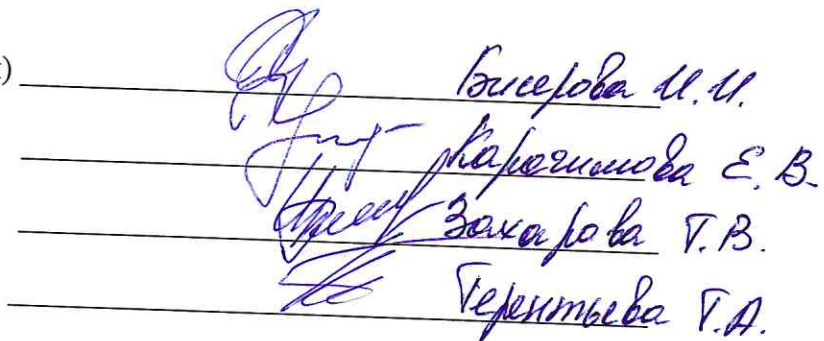 ) Бисерова И.И.
Карачимова Е.В.
Захарова Т.В.
Терентьева Т.А.